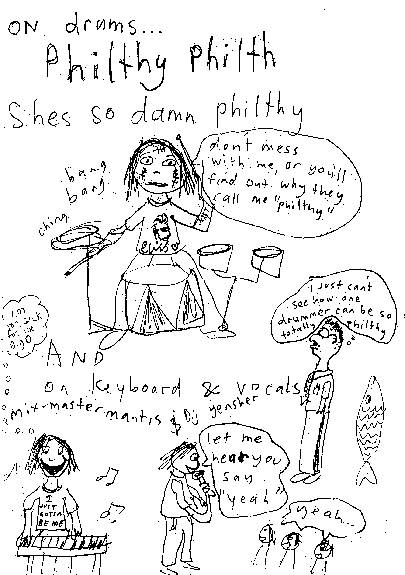 ON drums...
Philthy Philth
Shes so damn philthy
bang
bang
ching
don't mess
with me, or you'll
find out why they
call me "philthy"
elvis
I just can't
see how one
drummer can be so
totally philthy
AND
on keyboard & vocals
mix-mastermantis & Dj
let me
hear you
say
"yeah"
yeah...
I
JUST
GOTTA
BE ME